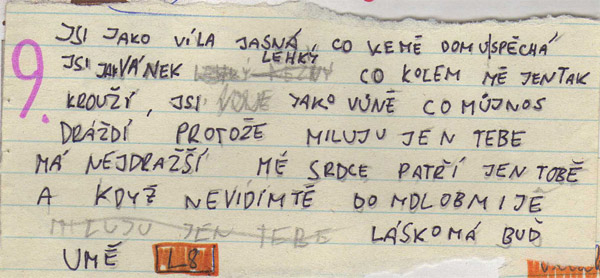 9.
JSI JAKO VÍLA JASNÁ CO KEMĚ DOMUSPĚCHÁ
JSI JAK VÁNEK LEHKÝ CO KOLEM MĚ JENTAK
KROUŽÍ, JSI JAKO VŮNĚ CO MŮJNOS
DRÁŽDÍ PROTOŽE MILUJU JEN TEBE
MÁ NEJDRAŽŠÍ MÉ SRDCE PATŘÍ JEN TOBĚ
A KDYŽ NEVIDÍMTĚ DO MDLOB MI JĚ
MILUJU JEN TEBE LÁSKO MÁ BUĎ
UMĚ L8